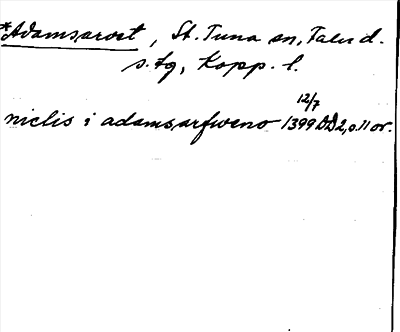 *Adamsarvet, St. Tuna sn, Falu d.
s. fg, Kopp. l.
12/7
niclis i adamsarfweno 1399 DD2, o. 11 or.